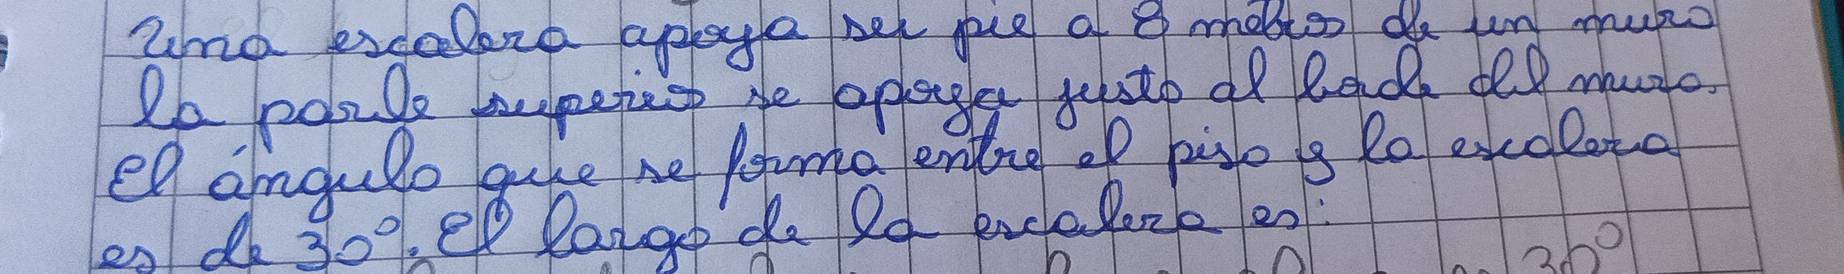 Una escalera apoya su pie a 8 metros de un muro
la parte superior se apoya justo al lado del muro.
el ángulo que se forma entre el piso y la escalera
es de 30°. El largo de la escalera es:
30°